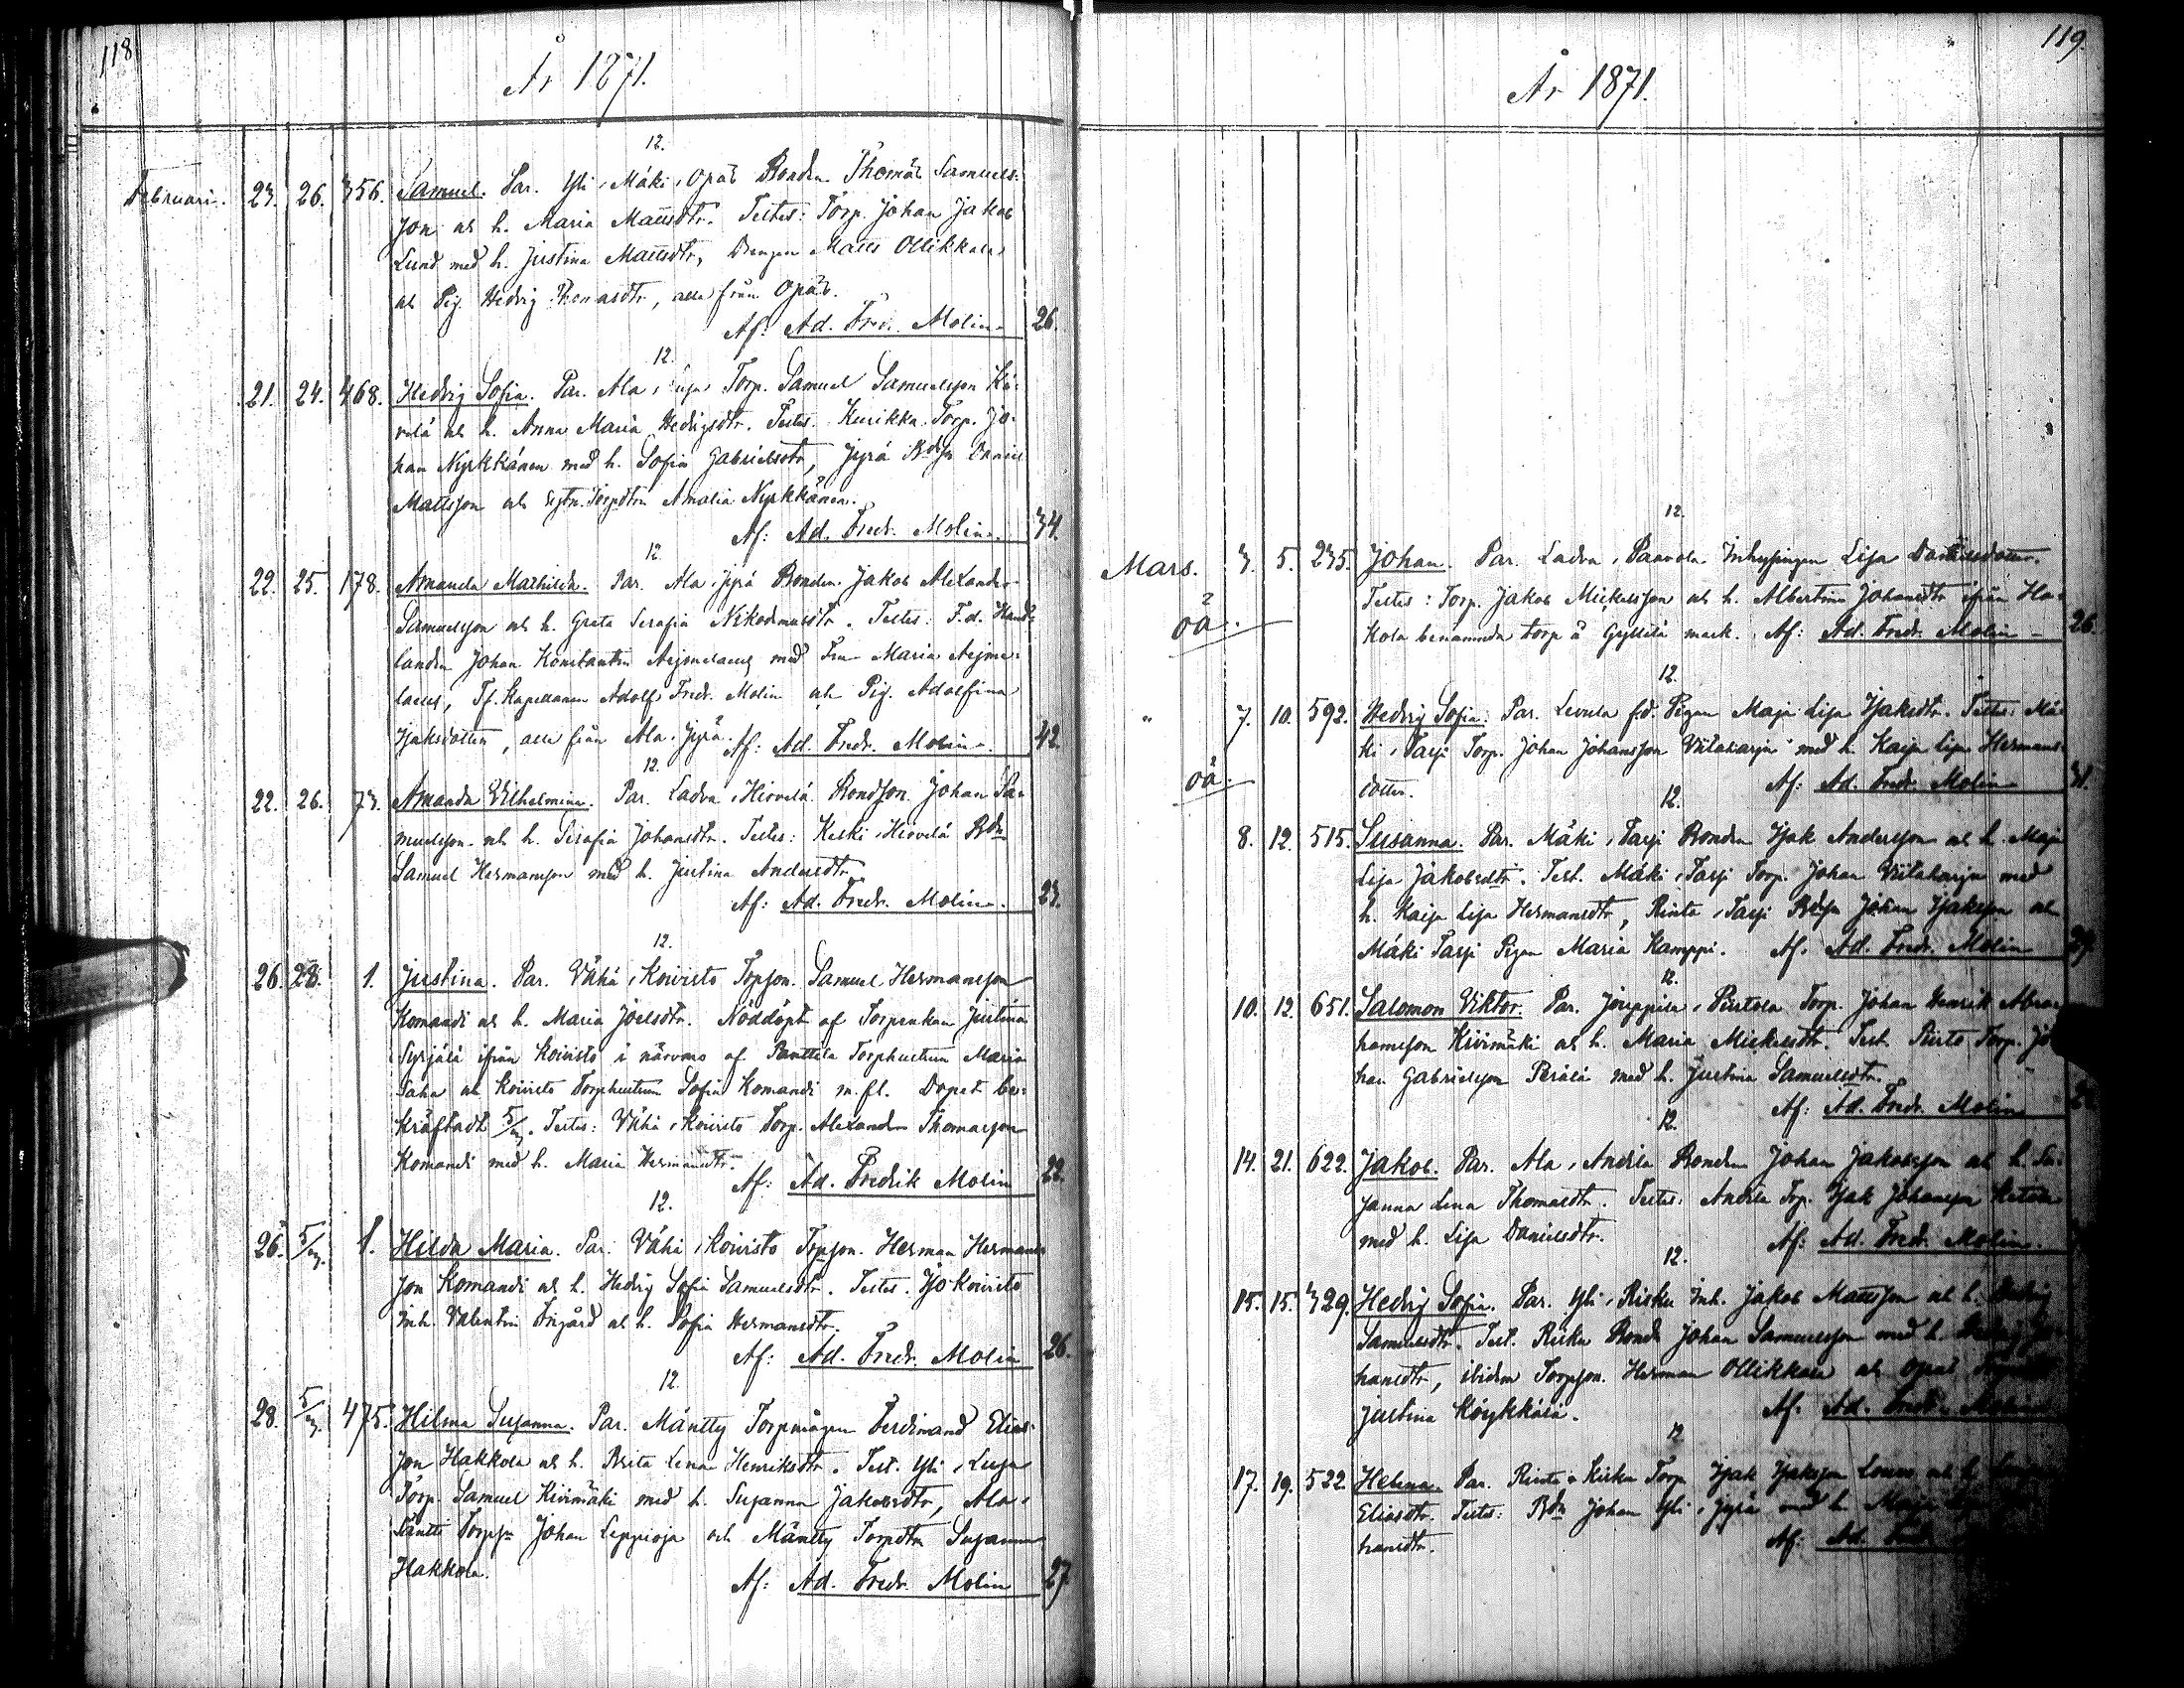 118
År 1871.
12.
Februari. 23. 26. 356. Samuel. Par. Yli, Mäki, Opas Bonden Thomas Samuels-
son och h. Maria Mattsdtr. Testes: Torp. Johan Jakob
Lund med h. Justina Mattsdtr, Drengen Matts Ollikkala
och Pig. Hedvig Thomasdtr, alla från Opas.
Af: Ad. Fredr. Molin 26.
12.
21. 24. 468. Hedvig Sofia. Par. Ala, Torp. Samuel Samuelsson
och h. Anna Maria Hedvigsdtr. Testes. Kurikka Torp. Jo-
han Nyrkkänen med h. Sofia Gabrielsdtr, Jyrä Bdsn Daniel
Mattsson och Torpdtrn Amalia Nyrkkänen.
Af: Ad. Fredr. Molin. 34.
12.
22. 25. 178. Amanda Mathilda. Par. Ala, Jyrä Bonden Jakob Alexander
Samuelsson och h. Greta Serafia Nikodemusdtr. Testes: F.d. Hand-
landen Johan Konstantin Aejmelaeus med Fru Maria Aejme-
laeus, Tf. Kapellanen Adolf Fredr. Molin och Pig. Adolfina
Isaksdotter, alla från Ala, Jyrä. Af: Ad. Fredr. Molin. 42.
12.
22. 26. 73. Amanda Vilhelmina. Par. Ladva, Hirvelä Bondson. Johan Sa-
muelsson och h. Serafia Johansdtr. Testes: Keski, Hirvelä Bdn
Samuel Hermansson med h. Justina Andersdtr.
Af: Ad. Fredr. Molin. 23.
12.
26. 28. 1. Justina. Par. Vähä, Koivisto Torpson. Samuel Hermansson
Komandi och h. Maria Joelsdtr. Nöddöpt af Torpenkan Justina
Syrjälä ifrån Koivisto i närvaro af Panttila Torphustrun Maria
Saha och Koivisto Torphustrun Sofia Komandi m. fl. Dopet be-
kräftadt 5/3. Testes: Vähä, Koivisto Torp. Alexander Thomasson
Komandi med h. Maria Hermansdtr.
Af: Ad. Fredrik Molin 22.
12.
26. 5/3. 1. Hilda Maria. Par. Vähä, Koivisto Torpson. Herman Hermans-
son Komandi och h. Hedvig Sofia Samuelsdtr. Testes. Iso Koivisto
Inh. Valentin och h. Sofia Hermansdtr.
Af: Ad. Fredr. Molin 26.
12.
28. 5/3. 475. Hilma Susanna. Par. Mäntty Torpmågen Ferdinand Elias-
son Hakkola och h. Brita Lena Henriksdtr. Test. Yli, Luja
Torp. Samuel Kivimäki med h. Susanna Jakobsdtr, Ala,
Säntti Torpsn Johan Leppioja och Mäntty Torpdtrn Susanna
Hakkola. Af: Ad. Fredr. Molin 27
119.
År 1871.
12.
Mars. 3. 5. 235. Johan. Par. Ladva, Paavola Inhysspigan Lisa Danielsdotter.
oä. Testes: Torp. Jakob Mickelsson och h. Albertina Johansdtr ifrån Ha-
kola benämnda torp å Gyllilä mark. Af: Ad. Fredr. Molin 26.
12.
" 7. 10. 592. Hedvig Sofia. Par. Levula f.d. Pigan Maja Lisa Isaksdtr. Testes: Mä-
ki, Tarsi Torp. Johan Johansson Viitaharju med h. Kaisa Lisa Hermans-
oä. dotter. Af: Ad. Fredr. Molin 31.
12.
8. 12. 515. Susanna. Par. Mäki, Tarsi Bonden Isak Andersson och h. Maja
Lisa Jakobsdtr. Test. Mäki, Tarsi Torp. Johan Viitaharju med
h. Kaisa Lisa Hermansdtr, Rinta, Tarsi Bdsn Johan Isaksson och
Mäki Tarsi Pigan Maria Kamppi. Af. Ad. Fredr. Molin 29.
12.
10. 12. 651. Salomon Viktor. Par. Jouppila, Perttola Torp. Johan Henrik Abra-
hamsson Kivimäki och h. Maria Mickelsdtr. Test. Torp. Jo-
han Gabrielsson Perälä med h. Justina Samuelsdtr.
Af: Ad. Fredr. Molin
12.
14. 21. 622. Jakob. Par. Ala, Anttila Bonden Johan Jakobsson och h. Su-
sanna Lena Thomasdtr. Testes: Anttila Torp. Isak Johansson
med h. Lisa Danielsdtr. Af: Ad. Fredr. Molin.
12.
15. 15. 329. Hedvig Sofia. Par. Yli, Risku Inh. Jakob Mattsson och h. Hedvig
Samuelsdtr. Test. Risku Bond. Johan Samuelsson med h.
hansdtr, ibidem Torpson. Herman Ollikkala och Opas
Justina Köykkälä. Af. Ad. Fredr. Molin
12
17. 19. 522. Helena. Par. Rinta, Kirku Torp. Isak Isaksson och h.
Eliasdtr. Testes: Bdn Johan Yli, Jyrä med h. Maja
hansdtr. Af: Ad. Fredr.